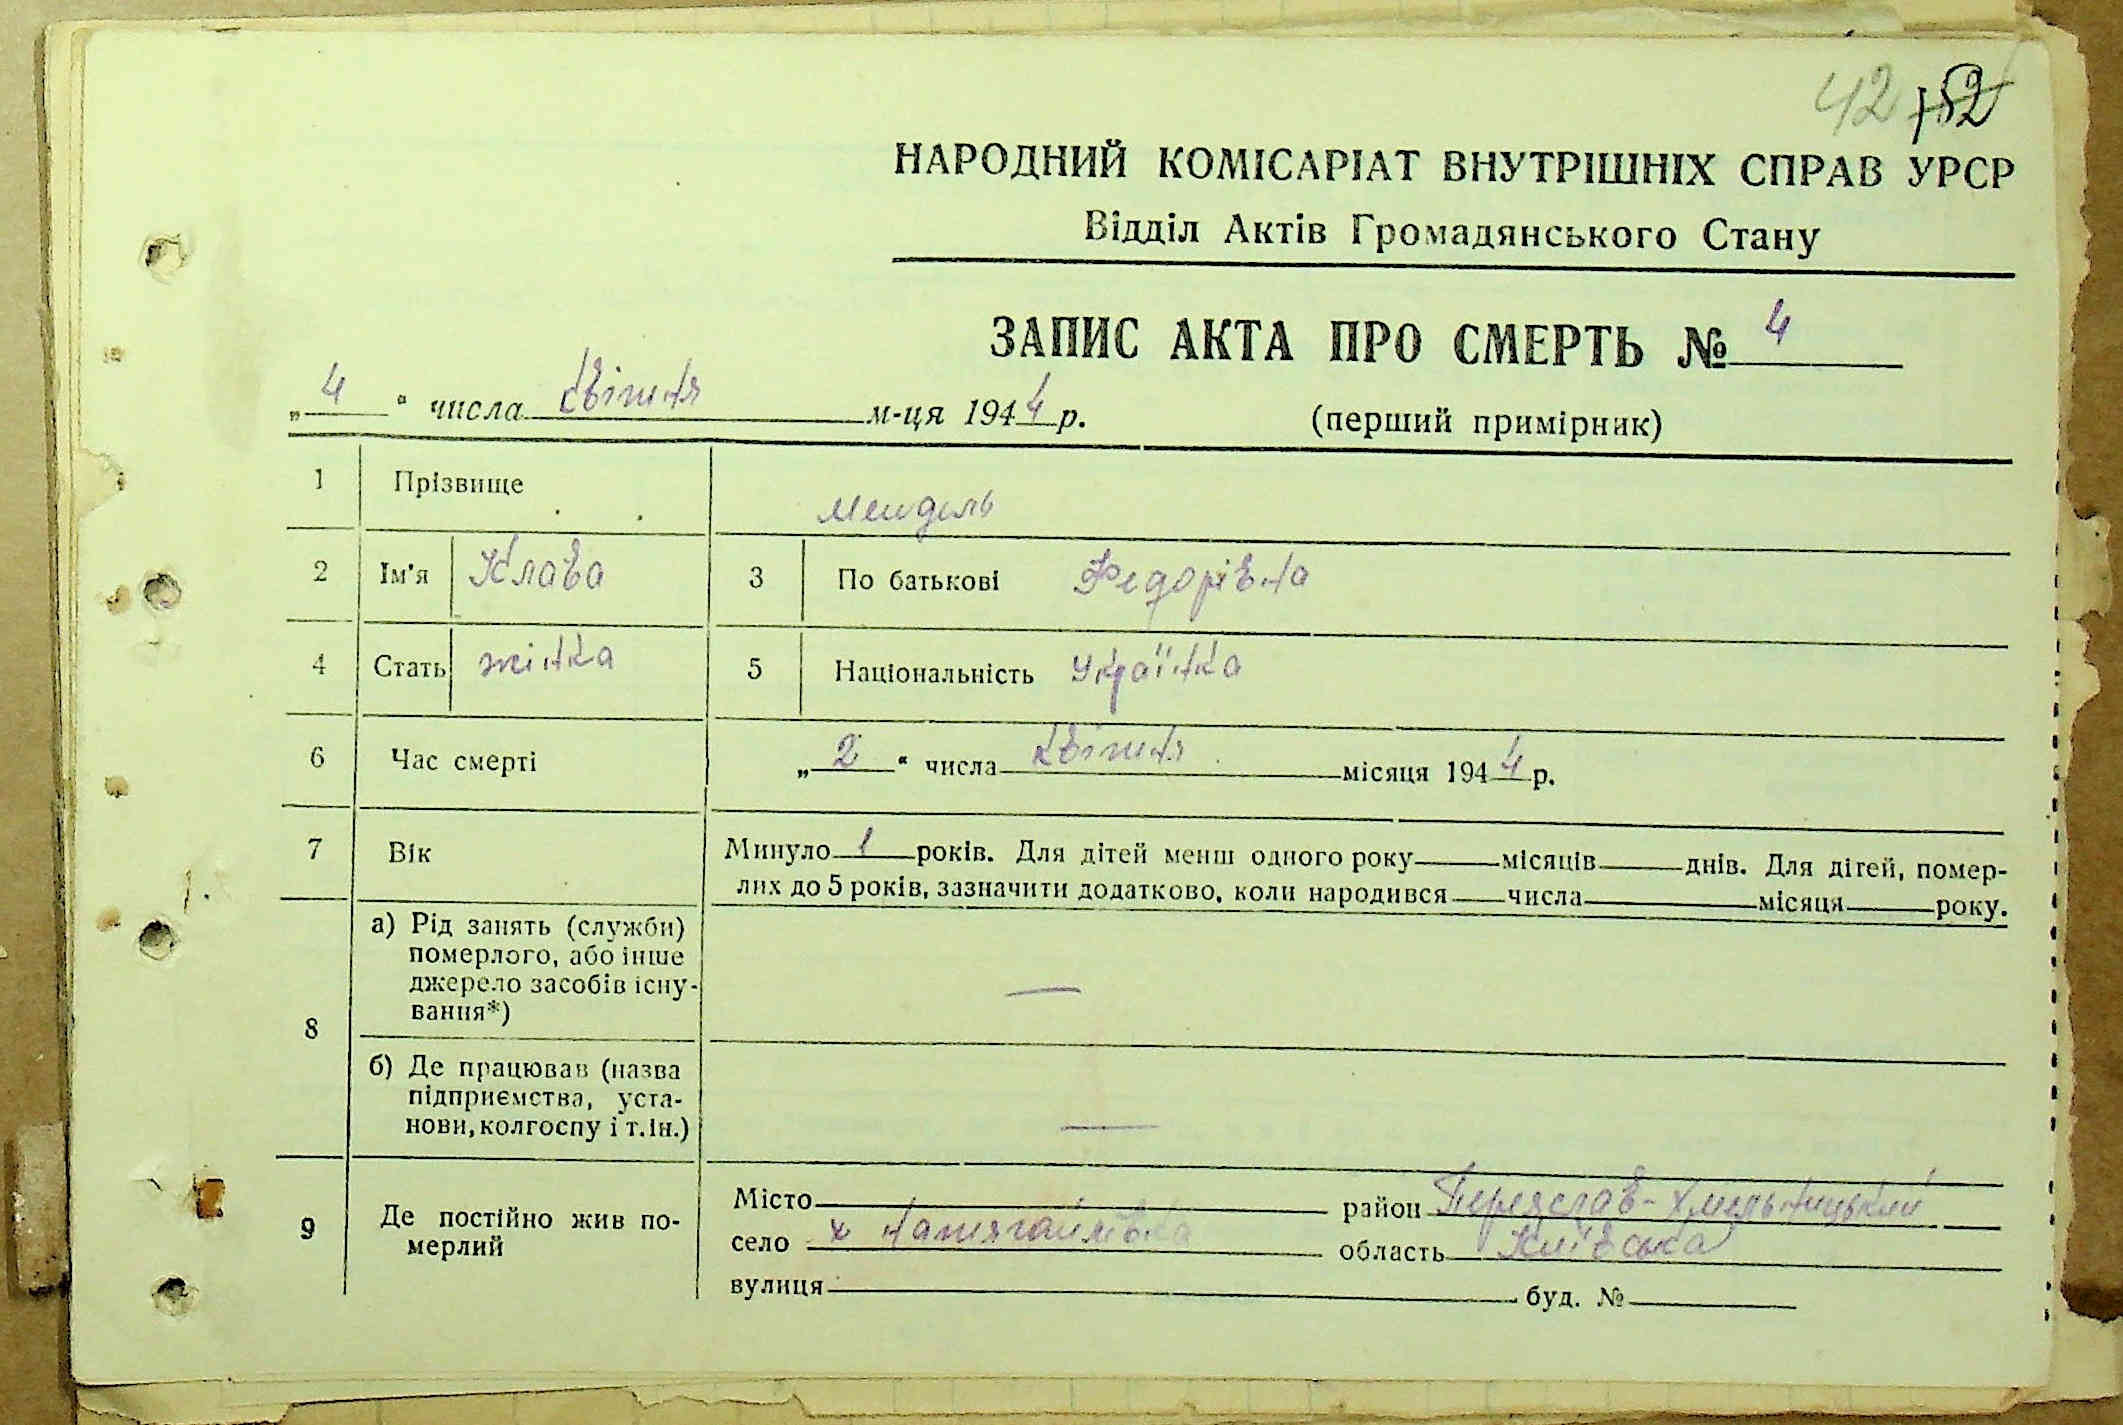 42 152
НАРОДНИЙ КОМІСАРІАТ ВНУТРІШНІХ СПРАВ УРСР
Відділ Актів Громадянського Стану
ЗАПИС АКТА ПРО СМЕРТЬ № 4
„4“ числа квітня м-ця 1944 р. (перший примірник)
1 Прізвище Мендель
2 Ім'я Клава 3 По батькові Федорівна
4 Стать жінка 5 Національність Українка
6 Час смерті „2“ числа квітня місяця 1944 р.
7 Вік Минуло 1 років. Для дітей менш одного року місяців днів. Для дітей, помер-
лих до 5 років, зазначити додатково, коли народився числа місяця року.
8 а) Рід занять (служби)
померлого, або інше
джерело засобів існу-
вання*) —
б) Де працював (назва
підприємства, уста-
нови, колгоспу і т.ін.) —
9 Де постійно жив по-
мерлий
Місто район Переяслав-Хмельницький
село х Натягайлівка область Київська
вулиця буд. №